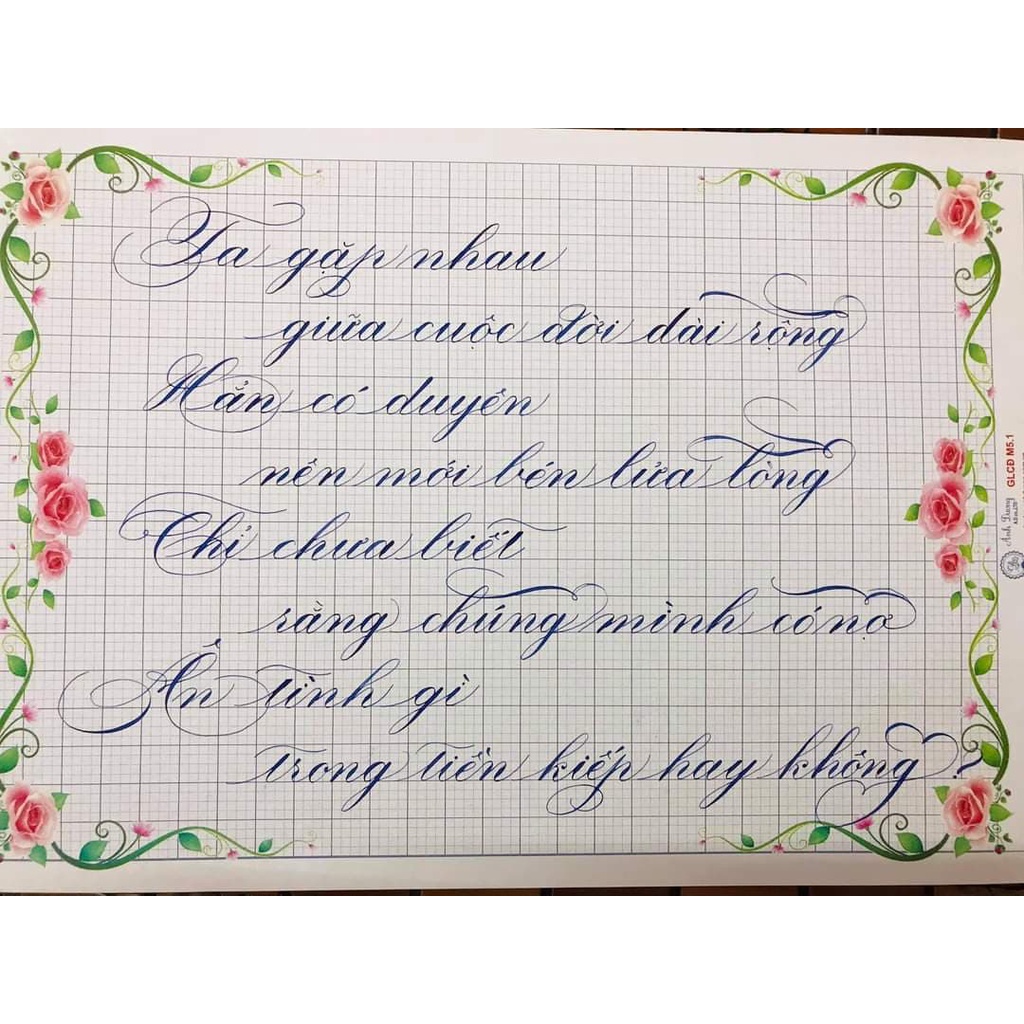 Ta gặp nhau
giữa cuộc đời dài rộng
Hẳn có duyên
nên mới bén lửa lòng
Chỉ chưa biết
rằng chúng mình có nợ
Ân tình gì
trong tiền kiếp hay không?
GLCD M5.1
Ánh Dương